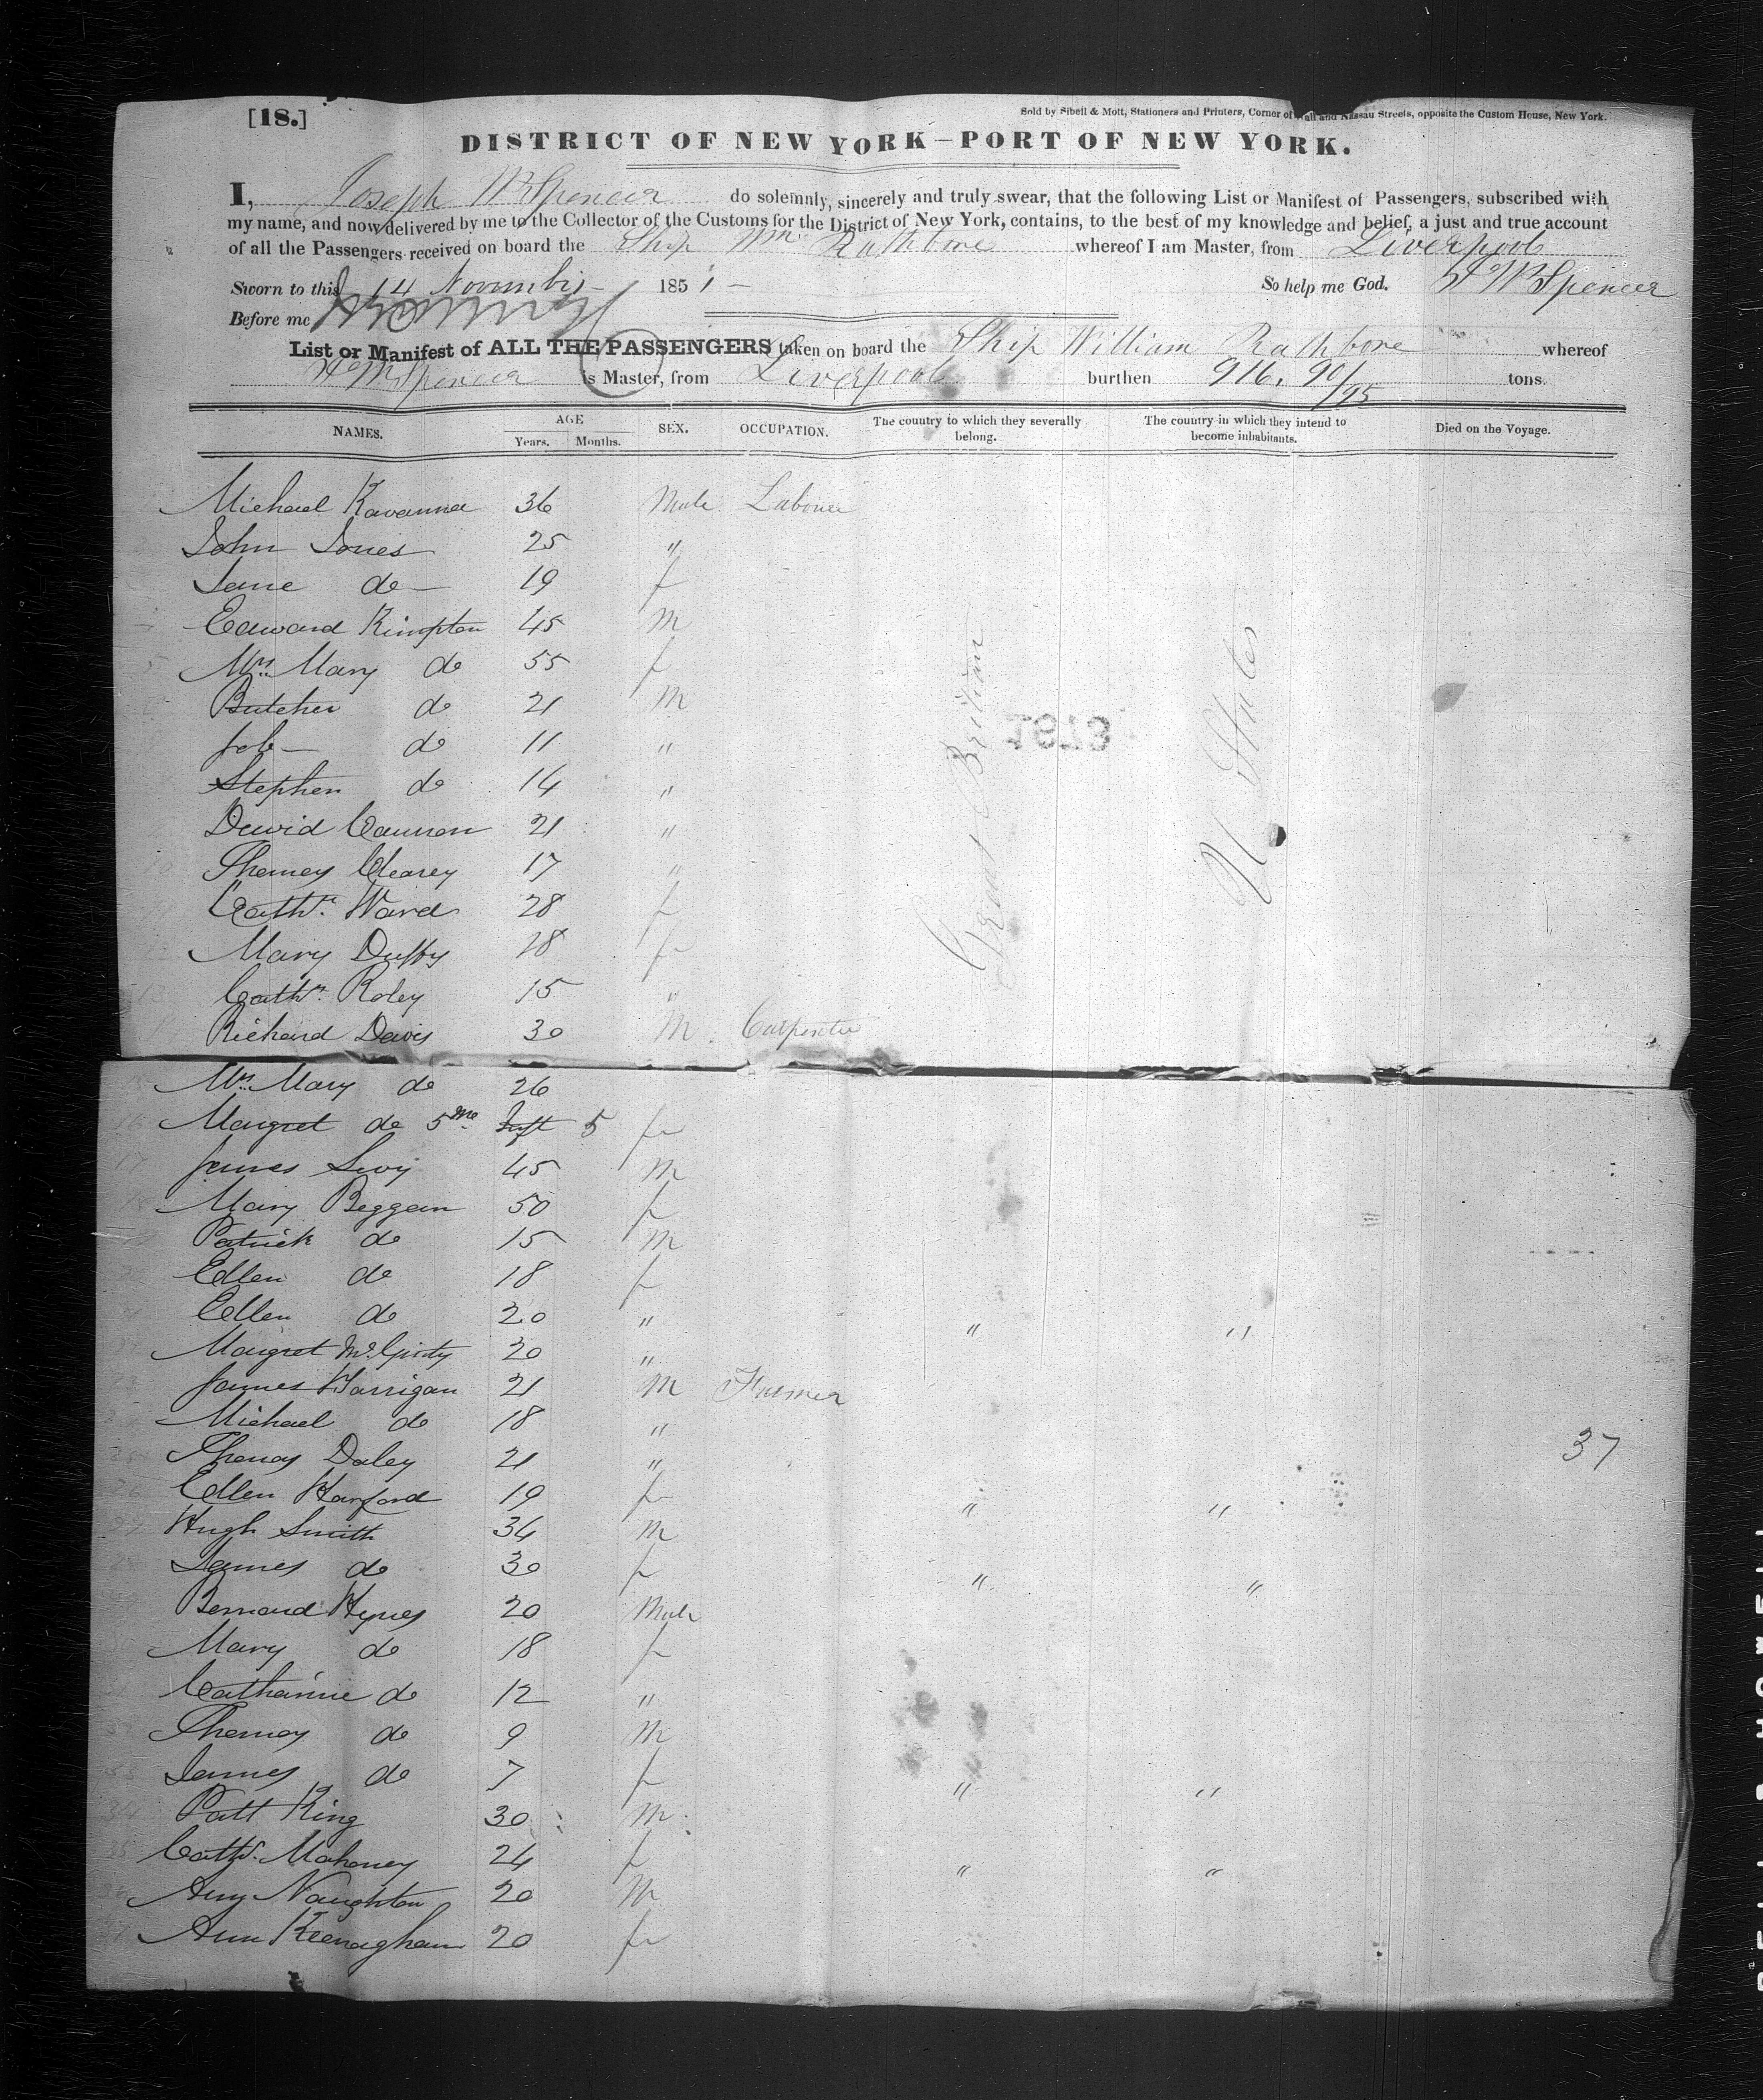 [18.]
Sold by Sibell & Mott, Stationers and Printers, Corner of Wall and Nassau Streets, opposite the Custom House, New York.
DISTRICT OF NEW YORK – PORT OF NEW YORK.
I, Joseph W Spencer do solemnly, sincerely and truly swear, that the following List or Manifest of Passengers, subscribed with
my name, and now delivered by me to the Collector of the Customs for the District of New York, contains, to the best of my knowledge and belief, a just and true account
of all the Passengers received on board the Ship Wm Rathbone whereof I am Master, from Liverpool
Sworn to this 14 Novembr 1851 – So help me God. J W Spencer
Before me
List or Manifest of ALL THE PASSENGERS taken on board the Ship William Rathbone whereof
J W Spencer is Master, from Liverpool burthen 916. 90/95 tons.
NAMES. AGE Years. Months. SEX. OCCUPATION. The country to which they severally belong. The country in which they intend to become inhabitants. Died on the Voyage.
Great Britian U States
1673
Michael Kavanna 36 Male Labourer
John Jones 25 "
Jane do – 19 f
Edward Kimpton 45 M
5 Mrs. Mary do 55 f
Butcher do 21 M
Job – do 11 "
Stephen do 14 "
David Cannon 21 "
10 Thomas Clearey 17 "
Cathr. Ward 28 f
12 Mary Duffy 18 f
13 Cathn. Roley 15 "
14 Richard Davis 30 M Carpenter
Mrs. Mary do 26
16 Margret do 5 mo Inft 5 f
17 James Levy 45 M
18 Mary Beggan 50 f
Patrick do 15 M
Ellen do 18 f
Ellen do 20 " " "
Margret McGinty 20 "
James Harrigan 21 M Farmer
Michael do 18 "
37
25 Thomas Daley 21 "
26 Ellen Harford 19 f " "
27 Hugh Smith 34 M
28 James do 30 f " "
Bernard Hynes 20 Male
Mary do 18 f
31 Catharine do 12 "
32 Thomas do 9 M
33 James do 7 f " "
34 Patt King 30 M
35 Cathr. Mahoney 24 f " "
36 Amy Naughton 20 M
Ann Keenaghan 20 f